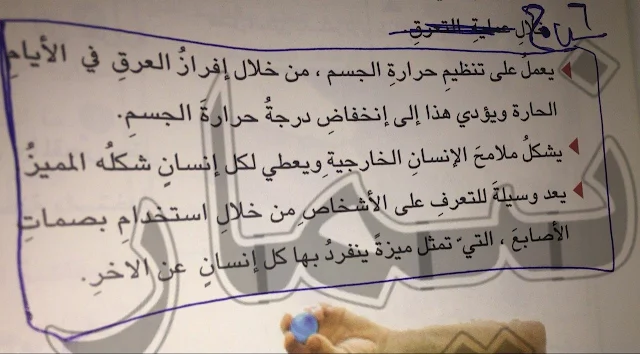 خلالِ عمليةِ التعرقِ
يعملُ على تنظيمِ حرارةِ الجسم ، من خلال إفرازُ العرقِ في الأيامِ
الحارة ويؤدي هذا إلى إنخفاضِ درجةُ حرارةَ الجسمِ.
يشكلُ ملامحَ الإنسانِ الخارجيةِ ويعطي لكل إنسانٍ شكلُه المميزُ
يعد وسيلةَ للتعرفِ على الأشخاصِ من خلالِ استخدامِ بصماتِ
الأصابعَ ، التيّ تمثل ميزةً ينفردُ بها كل إنسانٍ عن الاخرِ.